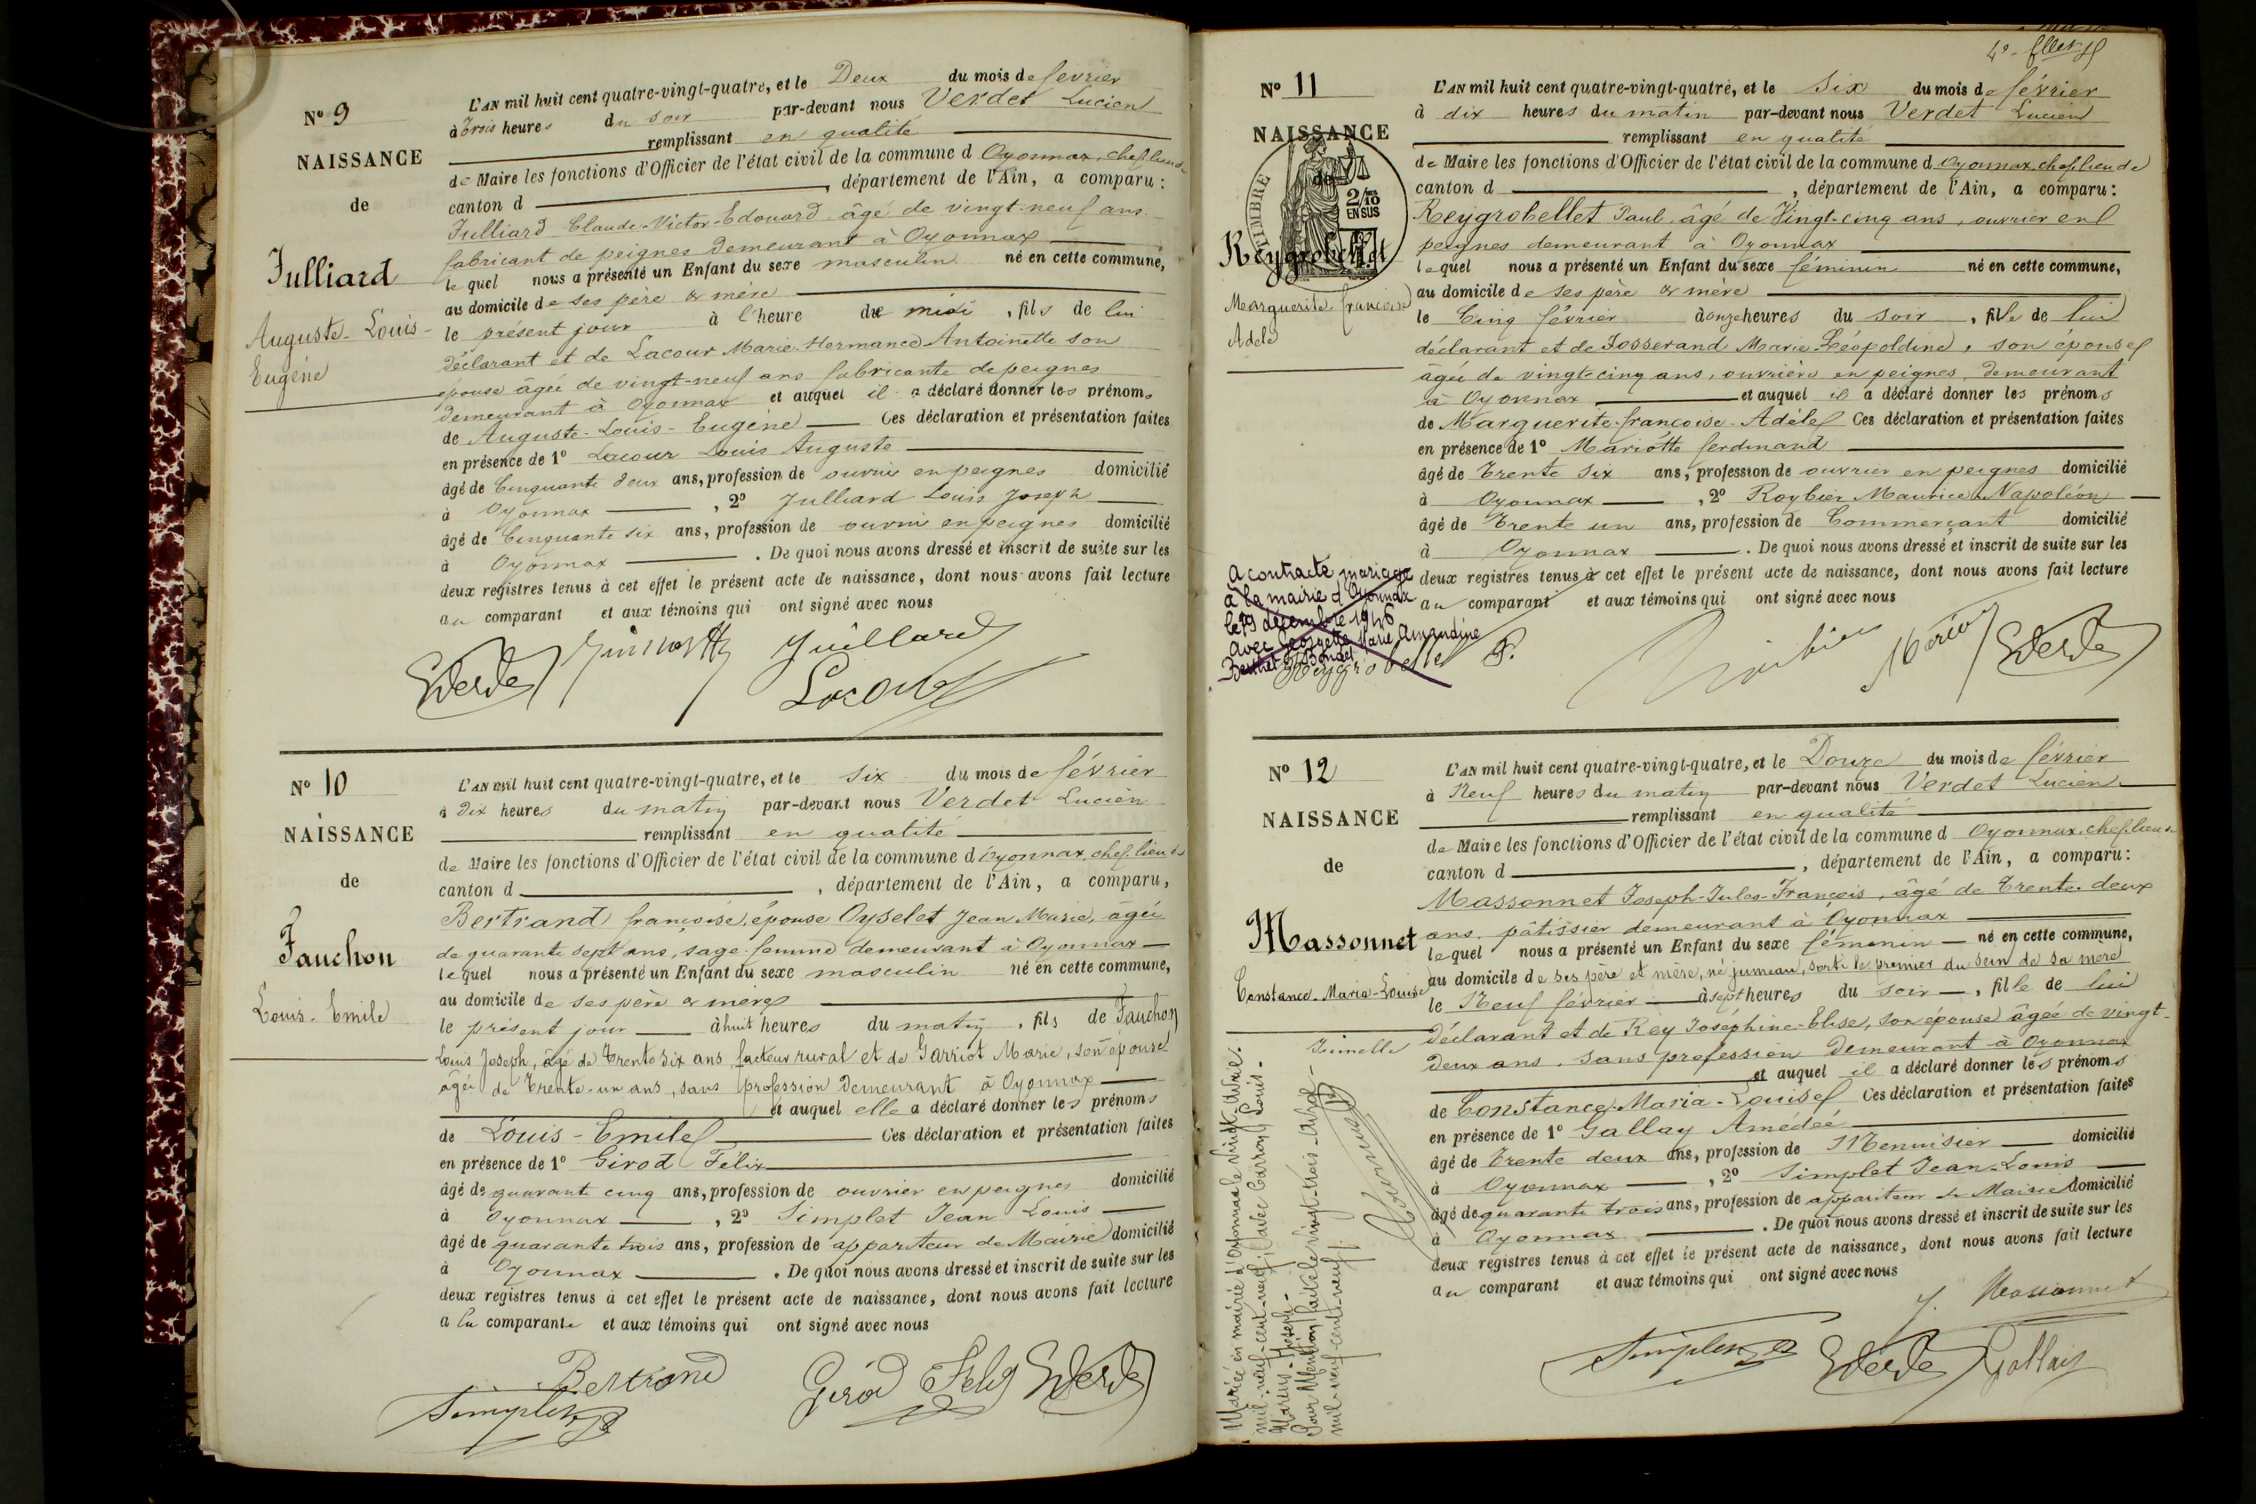 N° 9
NAISSANCE
de
Julliard
Auguste-Louis-
Eugéne
L'AN mil huit cent quatre-vingt-quatre, et le Deux du mois de fevrier
à Trois heures du soir par-devant nous Verdet Lucien
remplissant en qualité
de Maire les fonctions d'Officier de l'état civil de la commune d Oyonnax, chef lieu de
canton d , département de l'Ain, a comparu :
Julliard Claude-Victor-Edouard âgé de vingt-neuf ans
fabricant de peignes demeurant à Oyonnax
le quel nous a présenté un Enfant du sexe masculin né en cette commune,
au domicile de ses père & mère
le présent jour à l'heure de midi , fils de lui
déclarant et de Lacour Marie-Hermance Antoinette son
épouse âgée de vingt-neuf ans fabricante de peignes
demeurant à Oyonnax et auquel il a déclaré donner les prénoms
de Auguste-Louis-Eugéne Ces déclaration et présentation faites
en présence de 1° Lacour Louis Auguste
âgé de Cinquante deux ans, profession de ouvrier en peignes domicilié
à Oyonnax , 2° Julliard Louis Joseph
âgé de Cinquante six ans, profession de ouvrier en peignes domicilié
à Oyonnax . De quoi nous avons dressé et inscrit de suite sur les
deux registres tenus à cet effet le présent acte de naissance, dont nous avons fait lecture
au comparant et aux témoins qui ont signé avec nous
Juillard
Lacour
N° 10
NAISSANCE
de
Fauchon
Louis-Emile
L'AN mil huit cent quatre-vingt-quatre, et le six du mois de février
à dix heures du matin par-devant nous Verdet Lucien
remplissant en qualité
de Maire les fonctions d'Officier de l'état civil de la commune d Oyonnax, chef lieu de
canton d , département de l'Ain, a comparu,
Bertrand françoise, épouse Oyselet Jean Marie, âgée
de quarante sept ans, sage-femme demeurant à Oyonnax
lequel nous a présenté un Enfant du sexe masculin né en cette commune,
au domicile de ses père & mère
le présent jour à huit heures du matin , fils de Fauchon
Louis Joseph, âgé de trente six ans, facteur rural et de Garriot Marie, son épouse
âgée de trente-un ans, sans profession demeurant à Oyonnax
et auquel elle a déclaré donner les prénoms
de Louis-Emile Ces déclaration et présentation faites
en présence de 1° Girod Félix
âgé de quarante cinq ans, profession de ouvrier en peignes domicilié
à Oyonnax , 2° Simplet Jean Louis
âgé de quarante trois ans, profession de appariteur de Mairie domicilié
à Oyonnax . De quoi nous avons dressé et inscrit de suite sur les
deux registres tenus à cet effet le présent acte de naissance, dont nous avons fait lecture
à la comparante et aux témoins qui ont signé avec nous
Bertrand
Simplet
Girod Felix
N° 11
NAISSANCE
de
TIMBRE
2/10
EN SUS
Reygrobellet
Marguerite françoise
Adele
L'AN mil huit cent quatre-vingt-quatre, et le six du mois de février
à dix heures du matin par-devant nous Verdet Lucien
remplissant en qualité
de Maire les fonctions d'Officier de l'état civil de la commune d Oyonnax, chef lieu de
canton d , département de l'Ain, a comparu :
Reygrobellet Paul âgé de Vingt-cinq ans, ouvrier en
peignes demeurant à Oyonnax
lequel nous a présenté un Enfant du sexe féminin né en cette commune,
au domicile de ses père & mère
le Cinq février à onze heures du soir , fille de lui
déclarant et de Josserand Marie Léopoldine, son épouse
âgée de vingt-cinq ans, ouvrière en peignes, demeurant
à Oyonnax et auquel il a déclaré donner les prénoms
de Marguerite-françoise-Adèle Ces déclaration et présentation faites
en présence de 1° Mariotte ferdinand
âgé de trente six ans, profession de ouvrier en peignes domicilié
à Oyonnax , 2° Roybier Maurice Napoléon
âgé de trente un ans, profession de Commerçant domicilié
à Oyonnax . De quoi nous avons dressé et inscrit de suite sur les
deux registres tenus à cet effet le présent acte de naissance, dont nous avons fait lecture
au comparant et aux témoins qui ont signé avec nous
A contracté mariage
à la mairie d'Oyonnax
le 19 décembre 1946
avec Georgette Marie Amandine
Reygrobellet P.
N° 12
NAISSANCE
de
Massonnet
Constance-Maria-Louise
Jumelle
L'AN mil huit cent quatre-vingt-quatre, et le Douze du mois de février
à Neuf heures du matin par-devant nous Verdet Lucien
remplissant en qualité
de Maire les fonctions d'Officier de l'état civil de la commune d Oyonnax, chef lieu de
canton d , département de l'Ain, a comparu :
Massonnet Joseph-Jules-François, âgé de trente-deux
ans, pâtissier demeurant à Oyonnax
lequel nous a présenté un Enfant du sexe féminin né en cette commune,
au domicile de ses père et mère, né jumeau, sorti le premier du sein de sa mère
le Neuf février à sept heures du soir , fille de lui
déclarant et de Rey Joséphine-Elise, son épouse âgée de vingt-
deux ans, sans profession demeurant à Oyonnax
et auquel il a déclaré donner les prénoms
de Constance-Maria-Louise Ces déclaration et présentation faites
en présence de 1° Gallay Amédée
âgé de trente deux ans, profession de Menuisier domicilié
à Oyonnax , 2° Simplet Jean-Louis
âgé de quarante trois ans, profession de appariteur de Mairie domicilié
à Oyonnax . De quoi nous avons dressé et inscrit de suite sur les
deux registres tenus à cet effet le présent acte de naissance, dont nous avons fait lecture
au comparant et aux témoins qui ont signé avec nous
J. Massonnet
Simplet
Gallay
Mariée en mairie d'Oyonnax le vingt Avril
mil-neuf-cent-neuf, avec Carron Louis-
Marius-Joseph.-
Pour Mention faite le vingt-trois-Avril-
mil-neuf-cent-neuf.